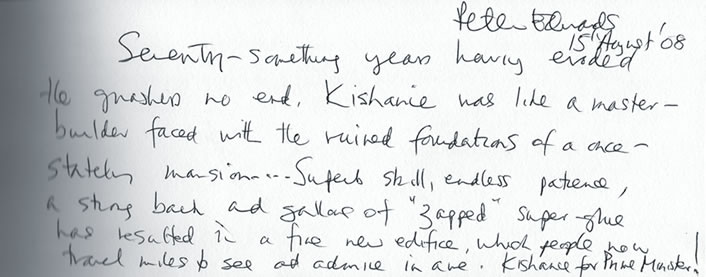 Peter Edwards
15 August '08
Seventy-something years having eroded
the gnashers no end, Kishanie was like a master-
builder faced with the ruined foundations of a once-
stately mansion.... Superb skill, endless patience,
a strong back and gallons of "zapped" super-glue
has resulted in a fine new edifice, which people now
travel miles to see and admire in awe. Kishanie for Prime Minister!